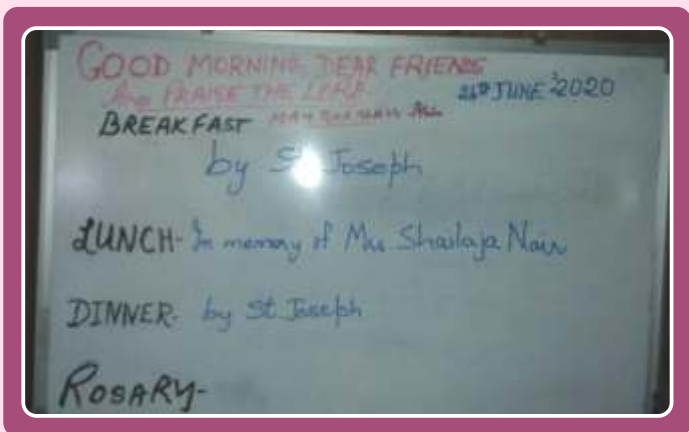 GOOD MORNING, DEAR FRIENDS
AND PRAISE THE LORD. 26TH JUNE '2020
BREAKFAST MAY GOD BLESS ALL
by St. Joseph
LUNCH- In memory of Mrs Shailaja Nair
DINNER- by St. Joseph
ROSARY-